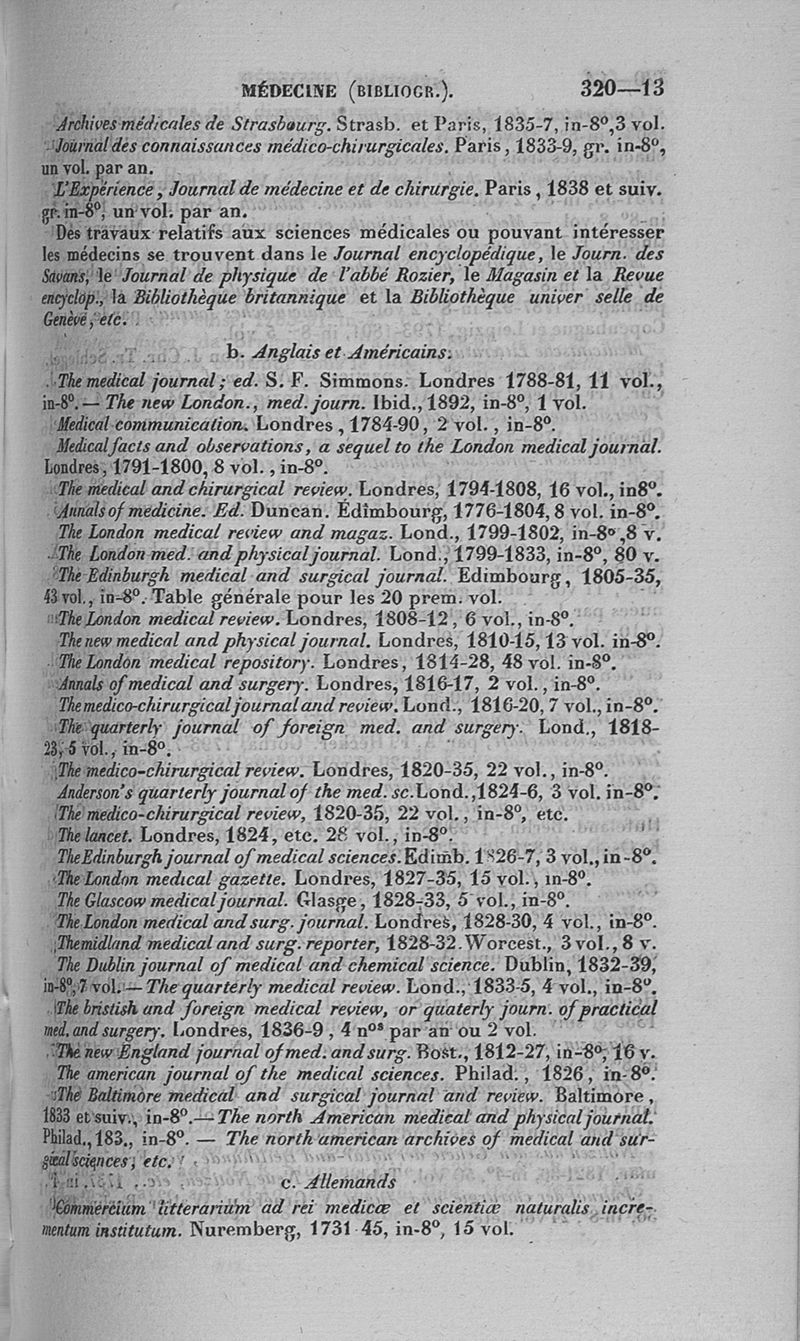 MÉDECINE (BIBLIOGR.). 320—13
Archives médicales de Strasbourg. Strasb. et Paris, 1835-7, in-8º,3 vol.
Journal des connaissances médico-chirurgicales. Paris, 1833-9, gr. in-8º,
un vol. par an.
L'Expérience, Journal de médecine et de chirurgie. Paris, 1838 et suiv.
gr. in-8º, un vol. par an.
Des travaux relatifs aux sciences médicales ou pouvant intéresser
les médecins se trouvent dans le Journal encyclopédique, le Journ. des
Savans, le Journal de physique de l'abbé Rozier, le Magasin et la Revue
encyclop., la Bibliothèque britannique et la Bibliothèque univer selle de
Genève, etc.
b. Anglais et Américains.
The medical journal; ed. S. F. Simmons. Londres 1788-81, 11 vol.,
in-8º. — The new London., med. journ. Ibid., 1892, in-8º, 1 vol.
Medical communication. Londres, 1784-90, 2 vol., in-8º.
Medical facts and observations, a sequel to the London medical journal.
Londres, 1791-1800, 8 vol., in-8º.
The medical and chirurgical review. Londres, 1794-1808, 16 vol., in8º.
Annals of medicine. Ed. Duncan. Édimbourg, 1776-1804, 8 vol. in-8º.
The London medical review and magaz. Lond., 1799-1802, in-8º,8 v.
The London med. and physical journal. Lond., 1799-1833, in-8º, 80 v.
The Edinburgh medical and surgical journal. Edimbourg, 1805-35,
43 vol., in-8º. Table générale pour les 20 prem. vol.
The London medical review. Londres, 1808-12, 6 vol., in-8º.
The new medical and physical journal. Londres, 1810-15, 13 vol. in-8º.
The London medical repository. Londres, 1814-28, 48 vol. in-8º.
Annals of medical and surgery. Londres, 1816-17, 2 vol., in-8º.
The medico-chirurgical journal and review. Lond., 1816-20, 7 vol., in-8º.
The quarterly journal of foreign med. and surgery. Lond., 1818-
23, 5 vol., in-8º.
The medico-chirurgical review. Londres, 1820-35, 22 vol., in-8º.
Anderson's quarterly journal of the med. sc. Lond.,1824-6, 3 vol. in-8º.
The medico-chirurgical review, 1820-35, 22 vol., in-8º, etc.
The lancet. Londres, 1824, etc. 28 vol., in-8º.
The Edinburgh journal of medical sciences. Edimb. 1826-7, 3 vol., in-8º.
The London medical gazette. Londres, 1827-35, 15 vol., in-8º.
The Glascow medical journal. Glasge, 1828-33, 5 vol., in-8º.
The London medical and surg. journal. Londres, 1828-30, 4 vol., in-8º.
The midland medical and surg. reporter, 1828-32. Worcest., 3 vol., 8 v.
The Dublin journal of medical and chemical science. Dublin, 1832-39,
in-8º, 7 vol. — The quarterly medical review. Lond., 1833-5, 4 vol., in-8º.
The bristish and foreign medical review, or quaterly journ. of practical
med. and surgery. Londres, 1836-9, 4 nos par an ou 2 vol.
The new England journal of med. and surg. Bost., 1812-27, in-8º, 16 v.
The american journal of the medical sciences. Philad., 1826, in-8º.
The Baltimore medical and surgical journal and review. Baltimore,
1833 et suiv., in-8º. — The north American medical and physical journal.
Philad., 183., in-8º. — The north american archives of medical and sur-
gical sciences, etc.
c. Allemands
Commercium litterarium ad rei medicæ et scientiæ naturalis incre-
mentum institutum. Nuremberg, 1731 45, in-8º, 15 vol.